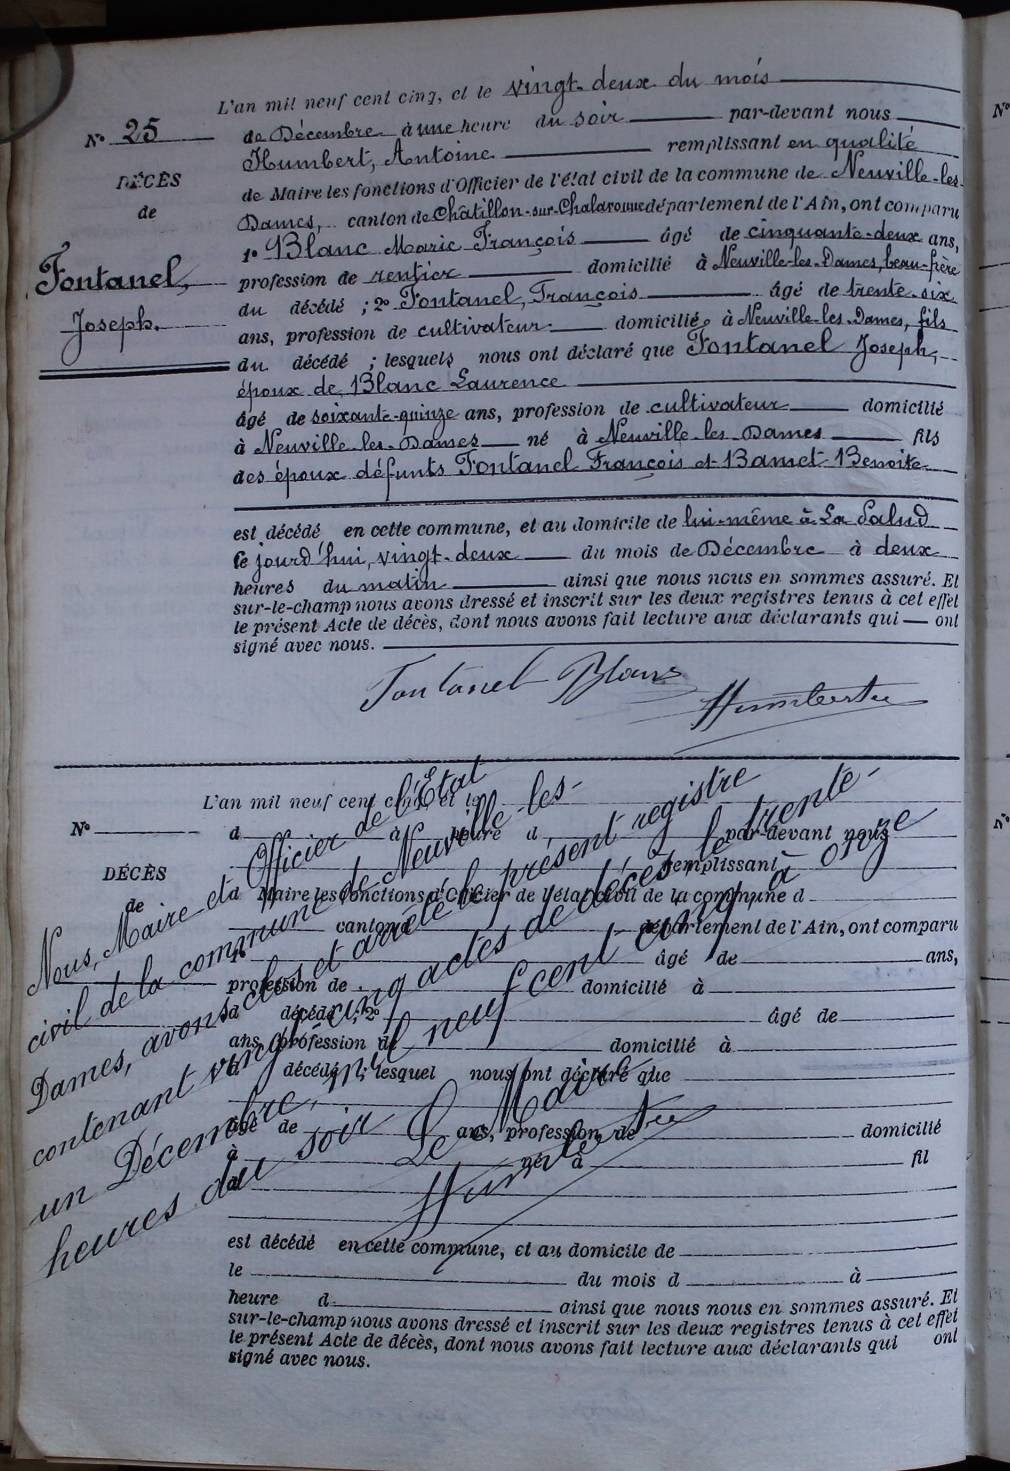 L'an mil neuf cent cinq, et le vingt-deux du mois
N° 25
de Décembre à une heure du soir par-devant nous
Humbert, Antoine remplissant en qualité
DÉCÈS
de Maire les fonctions d'Officier de l'état civil de la commune de Neuville-les-
de
Dames, canton de Châtillon-sur-Chalaronne département de l'Ain, ont comparu
1° Blanc Marie François âgé de cinquante-deux ans,
Fontanel,
profession de rentier domicilié à Neuville-les-Dames, beau-frère
du décédé ; 2° Fontanel, François âgé de trente-six
Joseph.
ans, profession de cultivateur domicilié à Neuville-les-Dames, fils
du décédé ; lesquels nous ont déclaré que Fontanel Joseph,
époux de Blanc Laurence
âgé de soixante-quinze ans, profession de cultivateur domicilié
à Neuville-les-Dames né à Neuville-les-Dames fils
des époux défunts Fontanel François et Bamet Benoite
est décédé en cette commune, et au domicile de lui-même à La Salud
ce jourd'hui, vingt-deux du mois de Décembre à deux
heures du matin ainsi que nous nous en sommes assuré. Et
sur-le-champ nous avons dressé et inscrit sur les deux registres tenus à cet effet
le présent Acte de décès, dont nous avons fait lecture aux déclarants qui ont
signé avec nous.
Fontanel Blanc
Humbert
L'an mil neuf cent cinq, et le
N°
d à heure d par-devant nous
remplissant
DÉCÈS
d Maire les fonctions d'Officier de l'état civil de la commune d
de
canton d département de l'Ain, ont comparu
1° âgé de ans,
profession de domicilié à
d décédé ; 2° âgé de
ans, profession de domicilié à
d décédé ; lesquel nous ont déclaré que
âgé de ans, profession de domicilié
à né à fil
d
est décédé en cette commune, et au domicile de
le du mois d à
heure d ainsi que nous nous en sommes assuré. Et
sur-le-champ nous avons dressé et inscrit sur les deux registres tenus à cet effet
le présent Acte de décès, dont nous avons fait lecture aux déclarants qui ont
signé avec nous.
Nous, Maire et Officier de l'État
civil de la commune de Neuville-les-
Dames, avons clos et arrêté le présent registre
contenant vingt-cinq actes de décès le trente-
un Décembre, mil neuf cent cinq à onze
heures du soir
Le Maire
Humbert
N°
N°